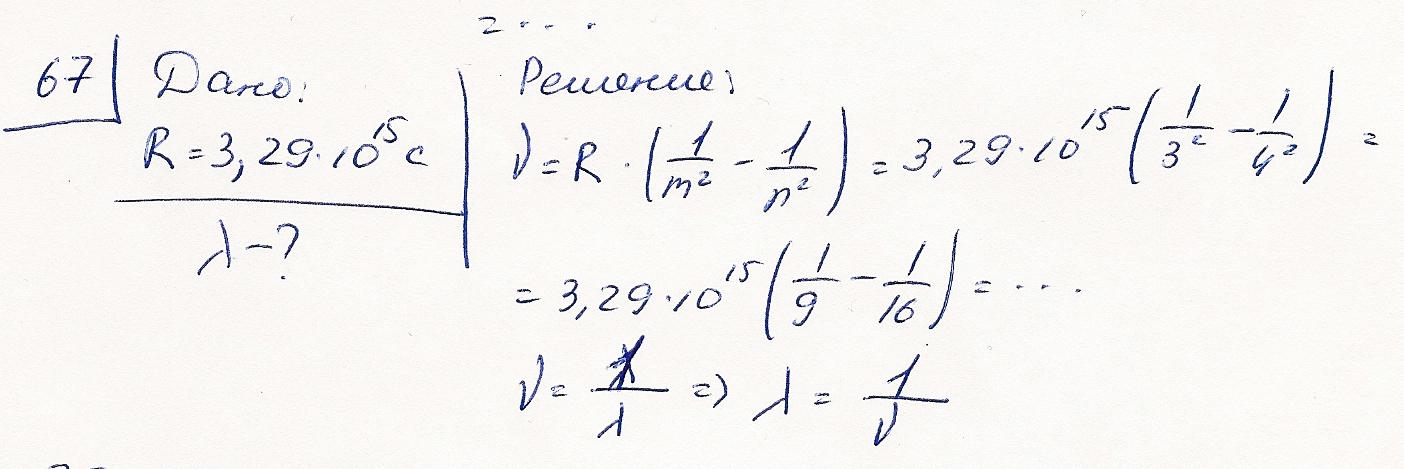 = . . .
67 Дано:
R = 3,29·10¹⁵ с
λ - ?
Решение:
ν = R · (1/m² - 1/n²) = 3,29·10¹⁵ (1/3² - 1/4²) =
= 3,29·10¹⁵ (1/9 - 1/16) = . . .
ν = 1/λ => λ = 1/ν